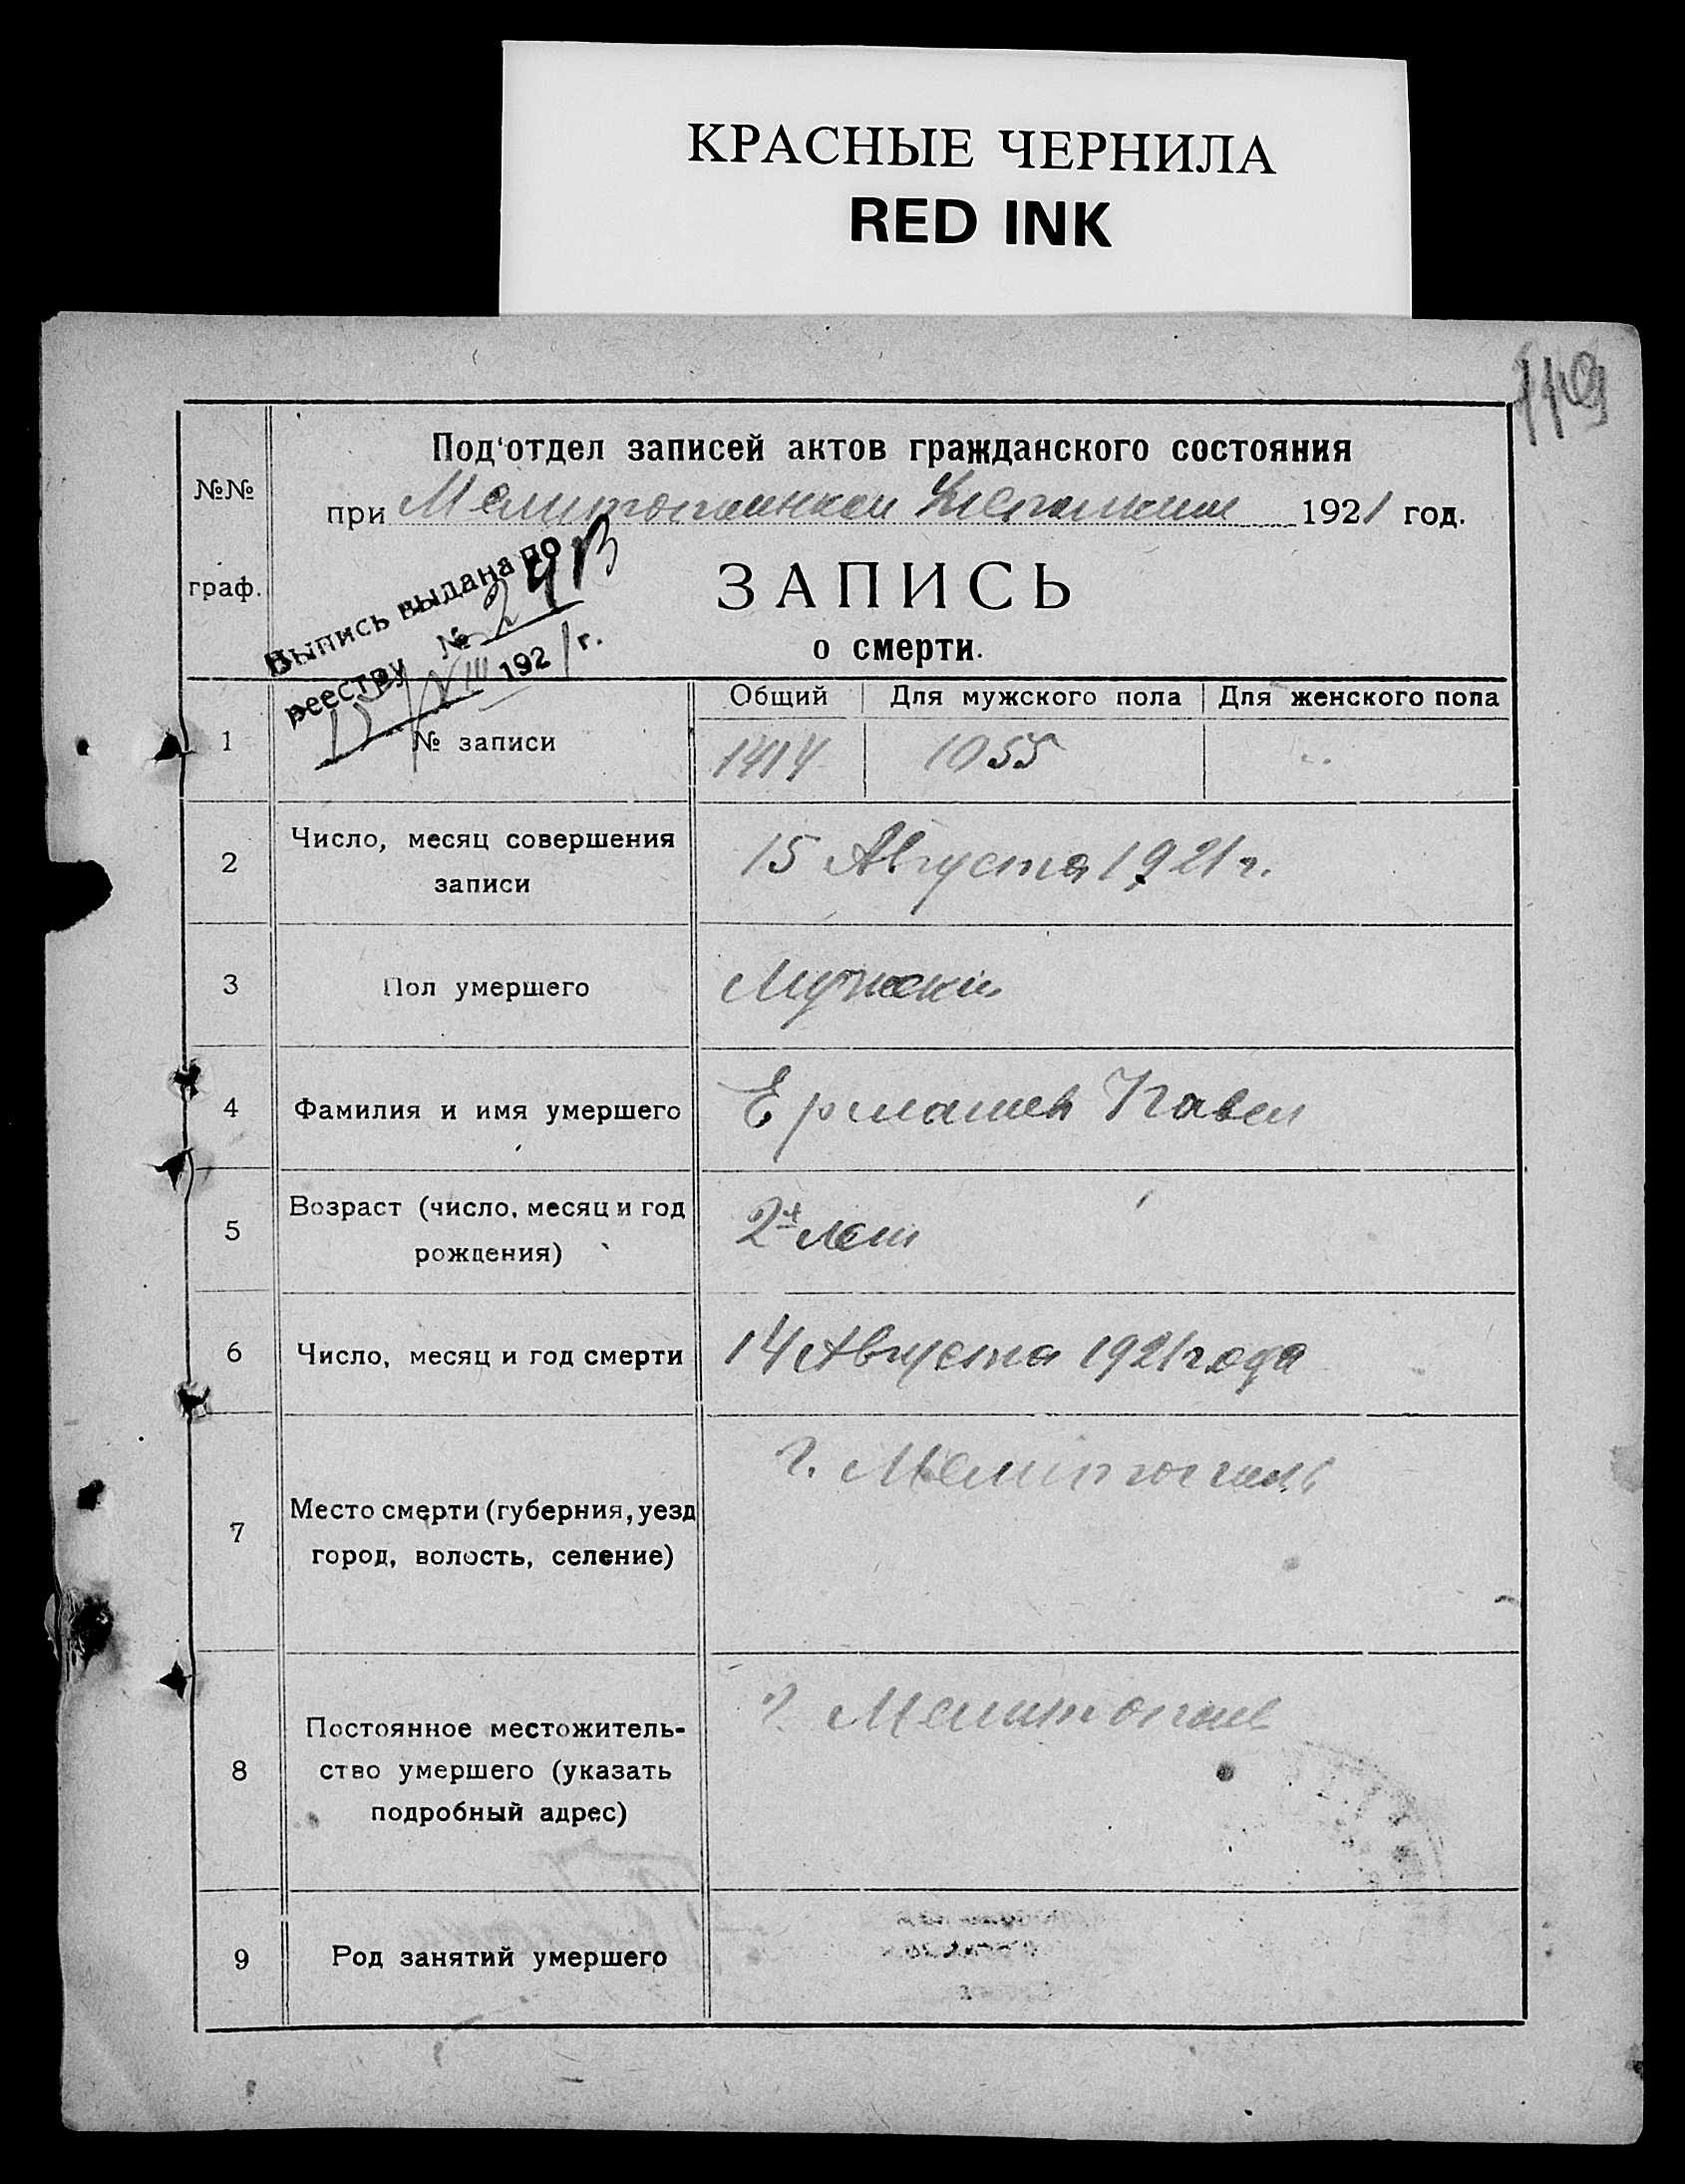 КРАСНЫЕ ЧЕРНИЛА
RED INK
119
Под'отдел записей актов гражданского состояния
№№
при 1921 год.
граф.
ЗАПИСЬ
о смерти.
Выпись выдана по
реестру №
15/VIII 1921 г.
Общий Для мужского пола Для женского пола
1 № записи 1414 1055
2 Число, месяц совершения
записи
15 Августа 1921 г.
3 Пол умершего Мужской
4 Фамилия и имя умершего Павел
5 Возраст (число, месяц и год
рождения)
лет
6 Число, месяц и год смерти 14 Августа 1921 года
7 Место смерти (губерния, уезд
город, волость, селение)
г. Мелитополь
8 Постоянное местожитель-
ство умершего (указать
подробный адрес)
г. Мелитополь
9 Род занятий умершего